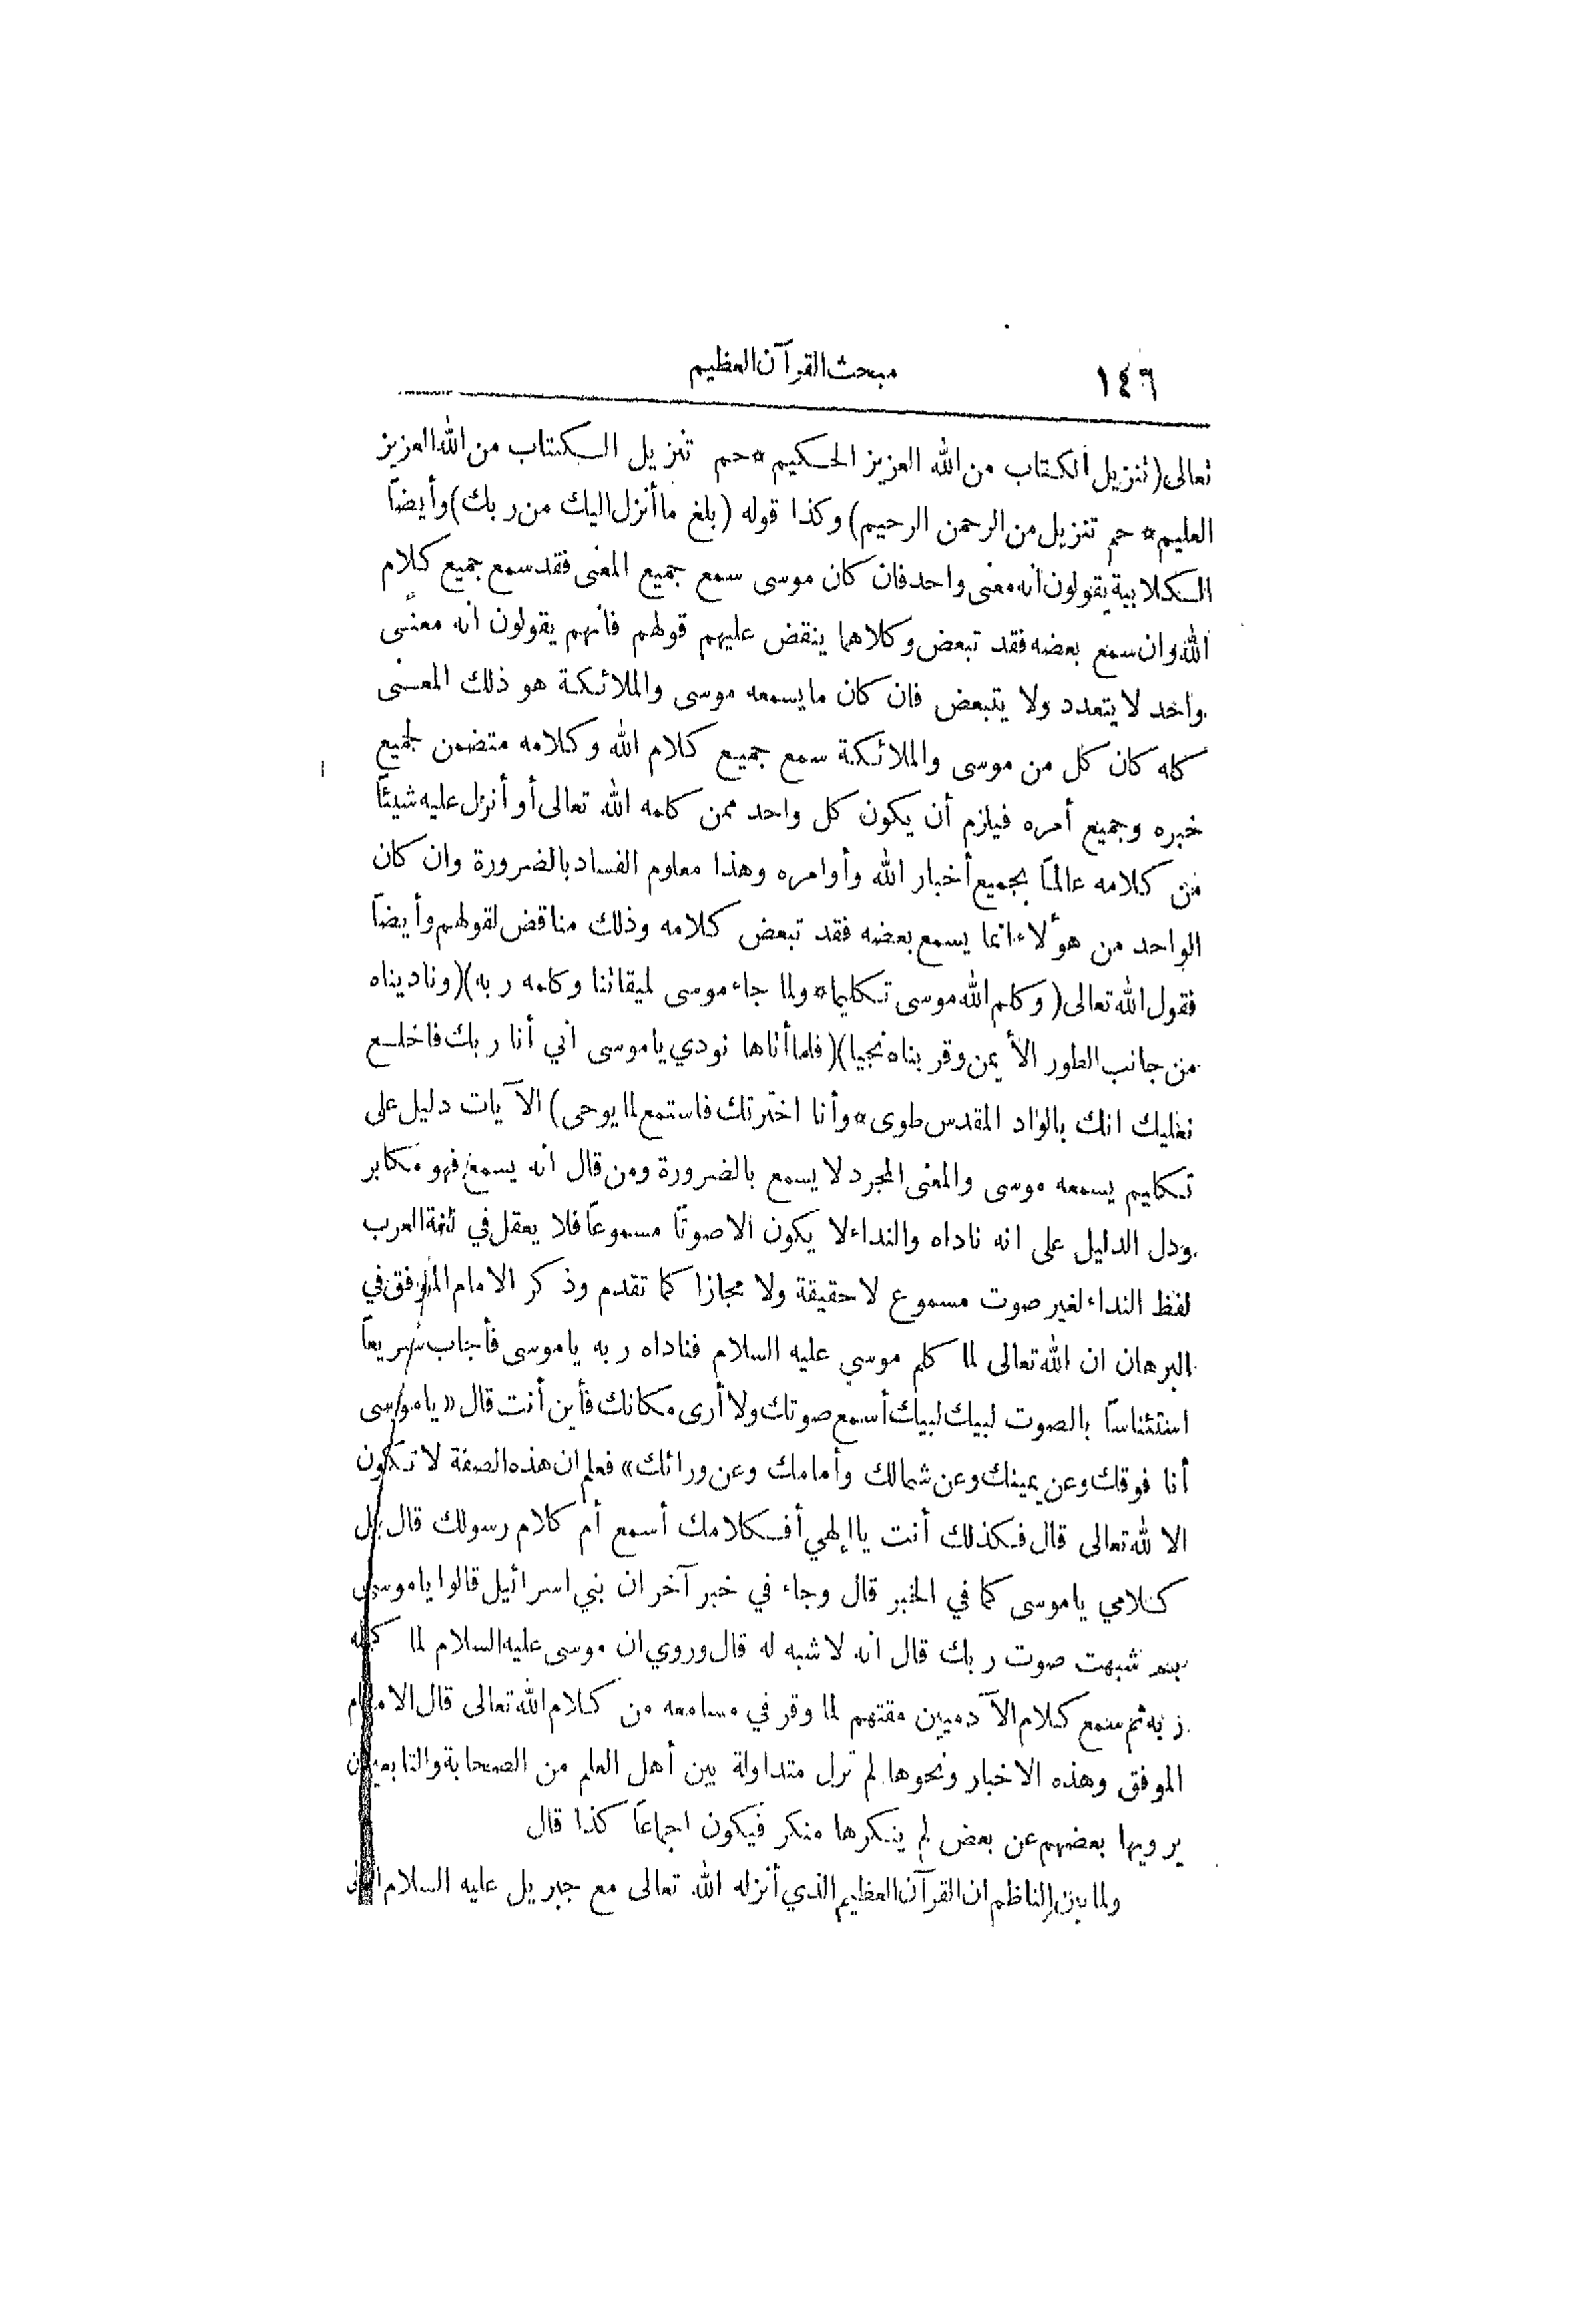 ١٤٦
مبحث القرآن العظيم
تعالى (تنزيل الكتاب من الله العزيز الحكيم * حم تنزيل الكتاب من الله العزيز
العليم * حم تنزيل من الرحمن الرحيم) وكذا قوله (بلغ ما أنزل اليك من ربك) وأيضاً
الكلابية يقولون انه معنى واحد فان كان موسى سمع جميع المعنى فقد سمع جميع كلام
الله وان سمع بعضه فقد تبعض وكلاهما ينقض عليهم قولهم فانهم يقولون انه معنًى
واحد لا يتعدد ولا يتبعض فان كان ما يسمعه موسى والملائكة هو ذلك المعنى
كله كان كل من موسى والملائكة سمع جميع كلام الله وكلامه متضمن لجميع
خبره وجميع أمره فيلزم أن يكون كل واحد ممن كلمه الله تعالى أو أنزل عليه شيئاً
من كلامه عالماً بجميع أخبار الله وأوامره وهذا معلوم الفساد بالضرورة وان كان
الواحد من هؤلاء انما يسمع بعضه فقد تبعض كلامه وذلك مناقض لقولهم وأيضاً
فقول الله تعالى (وكلم الله موسى تكليما * ولما جاء موسى لميقاتنا وكلمه ربه) (وناديناه
من جانب الطور الأيمن وقربناه نجيا) (فلما أتاها نودي يا موسى اني أنا ربك فاخلع
نعليك انك بالواد المقدس طوى * وأنا اخترتك فاستمع لما يوحى) الآيات دليل على
تكليم يسمعه موسى والمعنى المجرد لا يسمع بالضرورة ومن قال انه يسمع فهو مكابر
ودل الدليل على انه ناداه والنداء لا يكون الا صوتاً مسموعاً فلا يعقل في لغة العرب
لفظ النداء لغير صوت مسموع لا حقيقة ولا مجازا كما تقدم وذكر الامام الموفق في
البرهان ان الله تعالى لما كلم موسي عليه السلام فناداه ربه يا موسى فأجاب سريعاً
استئناساً بالصوت لبيك لبيك أسمع صوتك ولا أرى مكانك فأين أنت قال «يا موسى
أنا فوقك وعن يمينك وعن شمالك وأمامك وعن ورائك» فعلم ان هذه الصفة لا تكون
الا لله تعالى قال فكذلك أنت يا إلهي أفكلامك أسمع أم كلام رسولك قال بل
كلامي يا موسى كما في الخبر قال وجاء في خبر آخر ان بني اسرائيل قالوا يا موسى
بم شبهت صوت ربك قال انه لا شبه له قال وروي ان موسى عليه السلام لما كلمه
ربه ثم سمع كلام الآدميين مقتهم لما وقر في مسامعه من كلام الله تعالى قال الامام
الموفق وهذه الاخبار ونحوها لم تزل متداولة بين أهل العلم من الصحابة والتابعين
يرويها بعضهم عن بعض لم ينكرها منكر فيكون اجماعاً كذا قال
ولما بين الناظم ان القرآن العظيم الذي أنزله الله تعالى مع جبريل عليه السلام